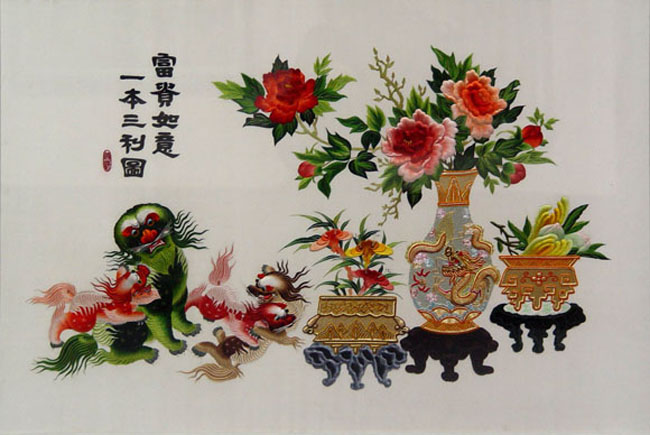 富貴如意
一本三利圖